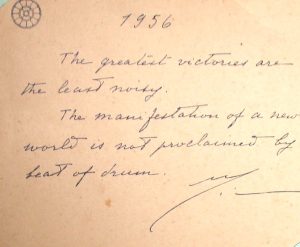 1956
The greatest victories are
the least noisy.
The manifestation of a new
world is not proclaimed by
beat of drum.